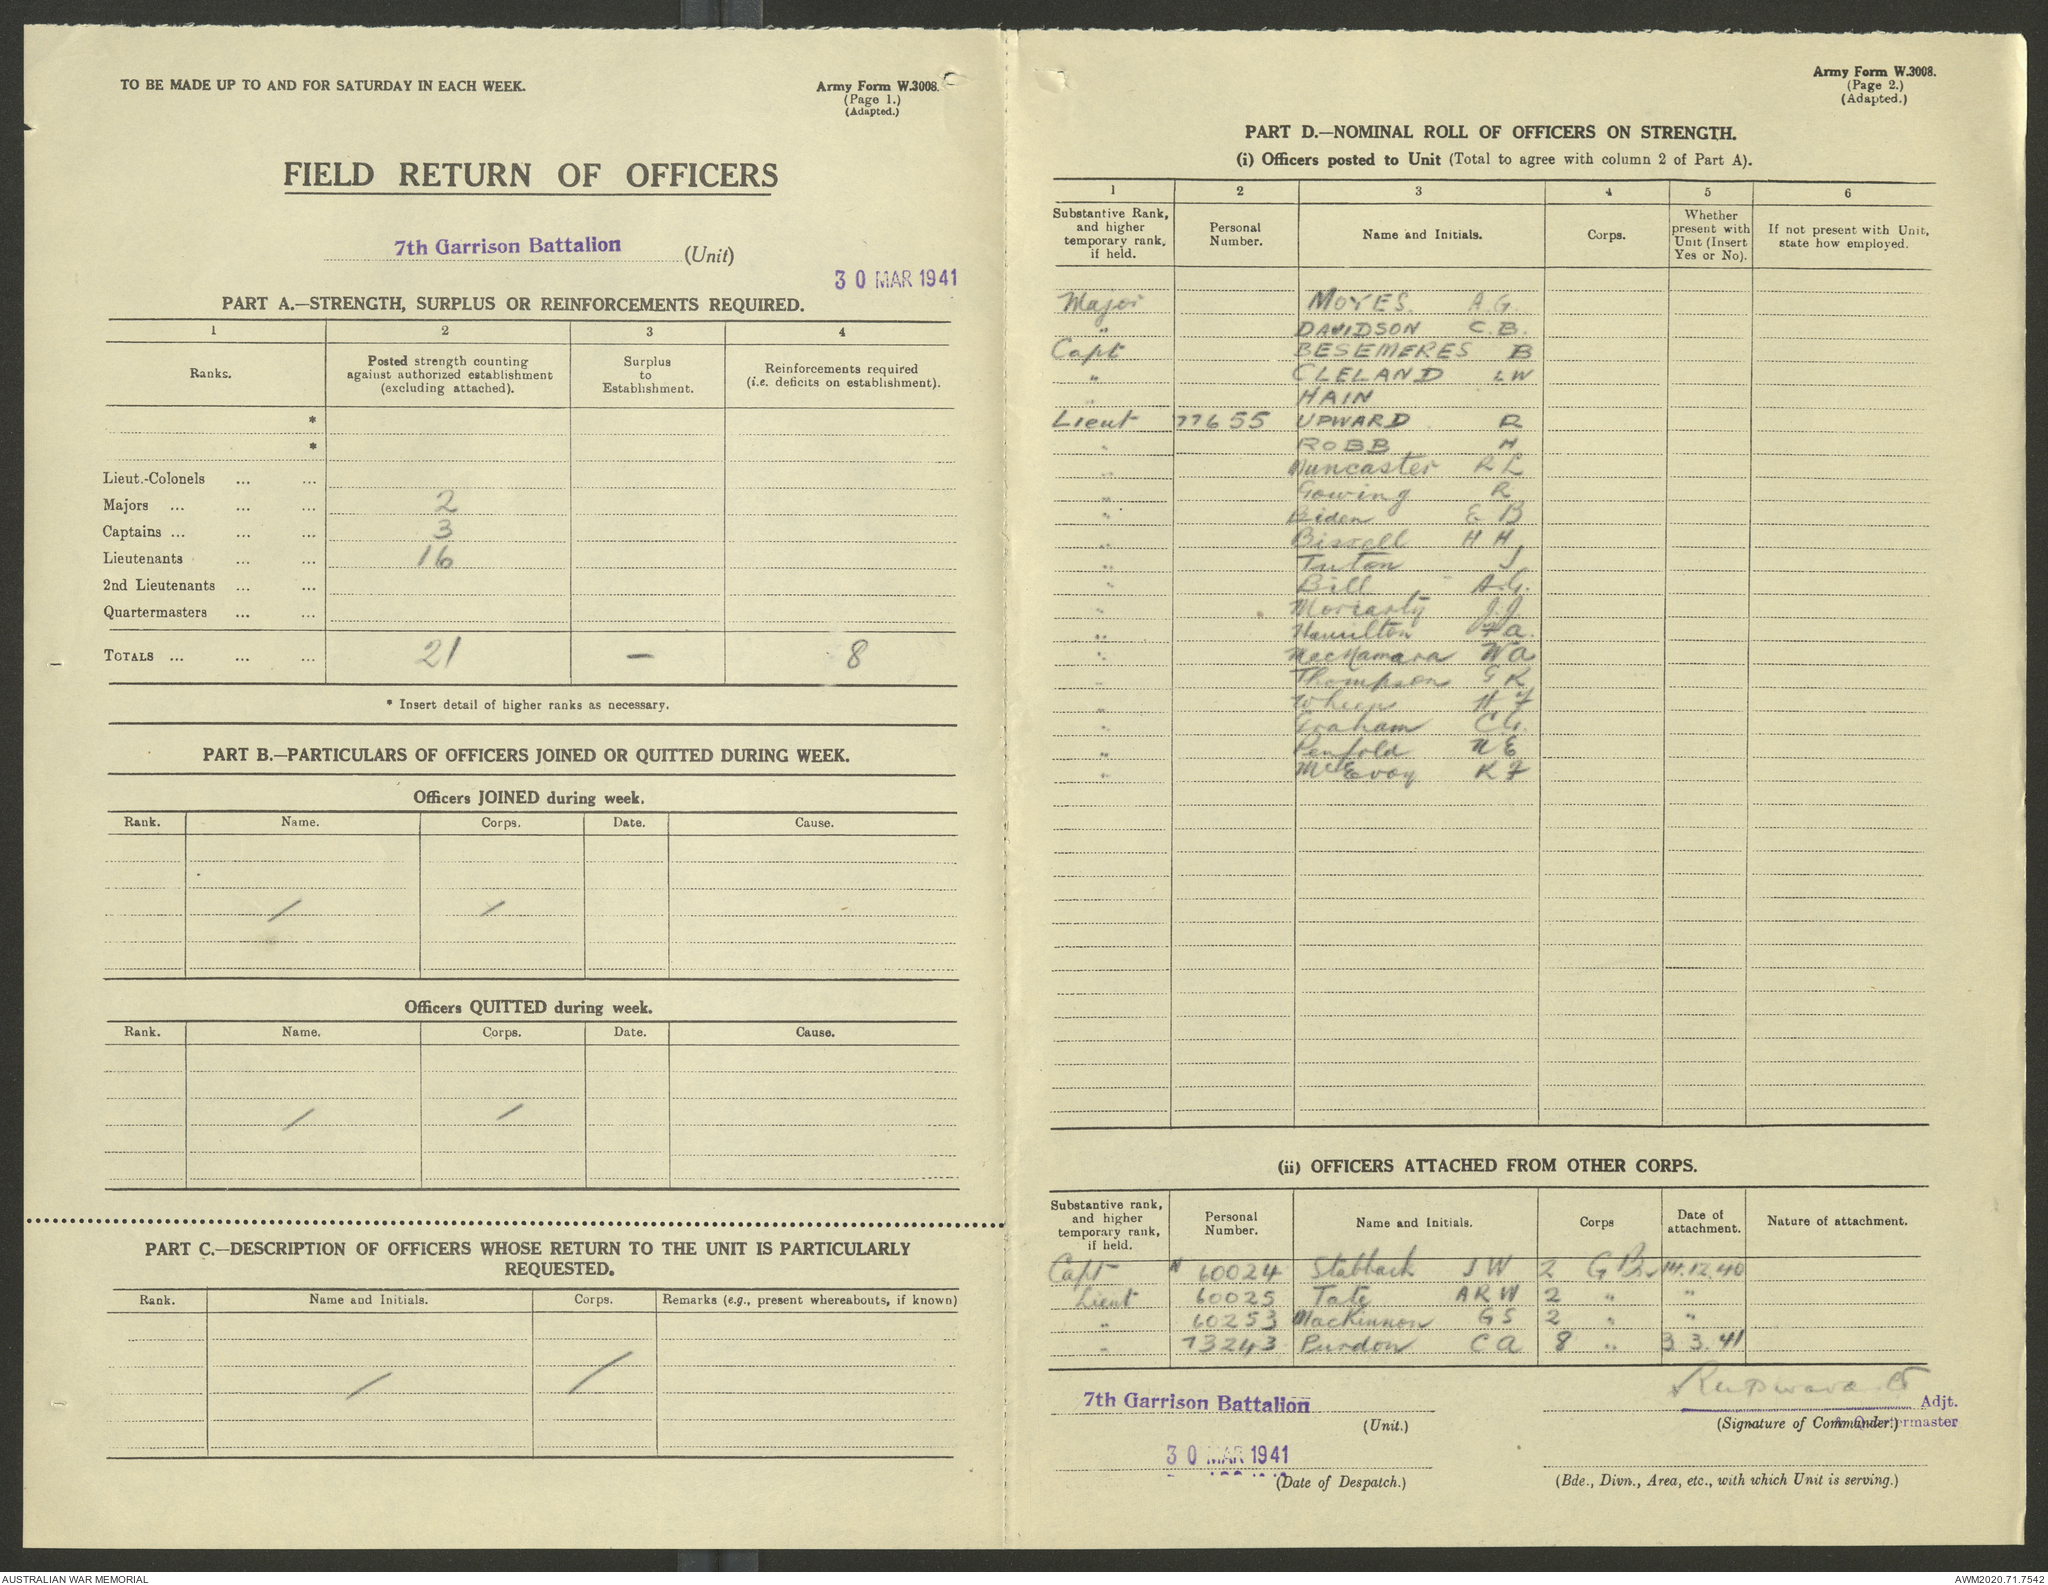 TO BE MADE UP TO AND FOR SATURDAY IN EACH WEEK.
Army Form W.3008.
(Page 1.)
(Adapted.)
FIELD RETURN OF OFFICERS
7th Garrison Battalion (Unit)
30 MAR 1941
PART A.—STRENGTH, SURPLUS OR REINFORCEMENTS REQUIRED.
1 2 3 4
Ranks. Posted strength counting against authorized establishment (excluding attached). Surplus to Establishment. Reinforcements required (i.e. deficits on establishment).
*
*
Lieut.-Colonels ... ...
Majors ... ... ... 2
Captains ... ... ... 3
Lieutenants ... ... 16
2nd Lieutenants ... ...
Quartermasters ... ...
TOTALS ... ... ... 21 — 8
* Insert detail of higher ranks as necessary.
PART B.—PARTICULARS OF OFFICERS JOINED OR QUITTED DURING WEEK.
Officers JOINED during week.
Rank. Name. Corps. Date. Cause.
/ /
Officers QUITTED during week.
Rank. Name. Corps. Date. Cause.
/ /
PART C.—DESCRIPTION OF OFFICERS WHOSE RETURN TO THE UNIT IS PARTICULARLY
REQUESTED.
Rank. Name and Initials. Corps. Remarks (e.g., present whereabouts, if known)
/ /
Army Form W.3008.
(Page 2.)
(Adapted.)
PART D.—NOMINAL ROLL OF OFFICERS ON STRENGTH.
(i) Officers posted to Unit (Total to agree with column 2 of Part A).
1 2 3 4 5 6
Substantive Rank, and higher temporary rank, if held. Personal Number. Name and Initials. Corps. Whether present with Unit (Insert Yes or No). If not present with Unit, state how employed.
Major MOYES. A.G.
" DAVIDSON C.B.
Capt BESEMERES B
" CLELAND L W
" HAIN
Lieut 77655 UPWARD R
" ROBB H
" Muncaster R L
" Gowing R
" Biden E B
" Bissell H H
" Tuton J
" Bill A.G.
" Moriarty J.J.
" Hamilton F A.
" MacNamara W A
" Thompson G K
" H F
" Graham C G.
" Penfold N E
" McEvoy K F
(ii) OFFICERS ATTACHED FROM OTHER CORPS.
Substantive rank, and higher temporary rank, if held. Personal Number. Name and Initials. Corps Date of attachment. Nature of attachment.
Capt N 60024 Stabback J W 2 G Bn 14.12.40
Lieut 60025 Tate A R W 2 " "
" 60253 MacKinnon G S 2 " "
" 73243 Purdon C A 8 " 3.3.41
7th Garrison Battalion
(Unit.)
RUpward Lt Adjt.
(Signature of Commander.) & Quartermaster
30 MAR 1941
(Date of Despatch.)
(Bde., Divn., Area, etc., with which Unit is serving.)
AUSTRALIAN WAR MEMORIAL
AWM2020.71.7542